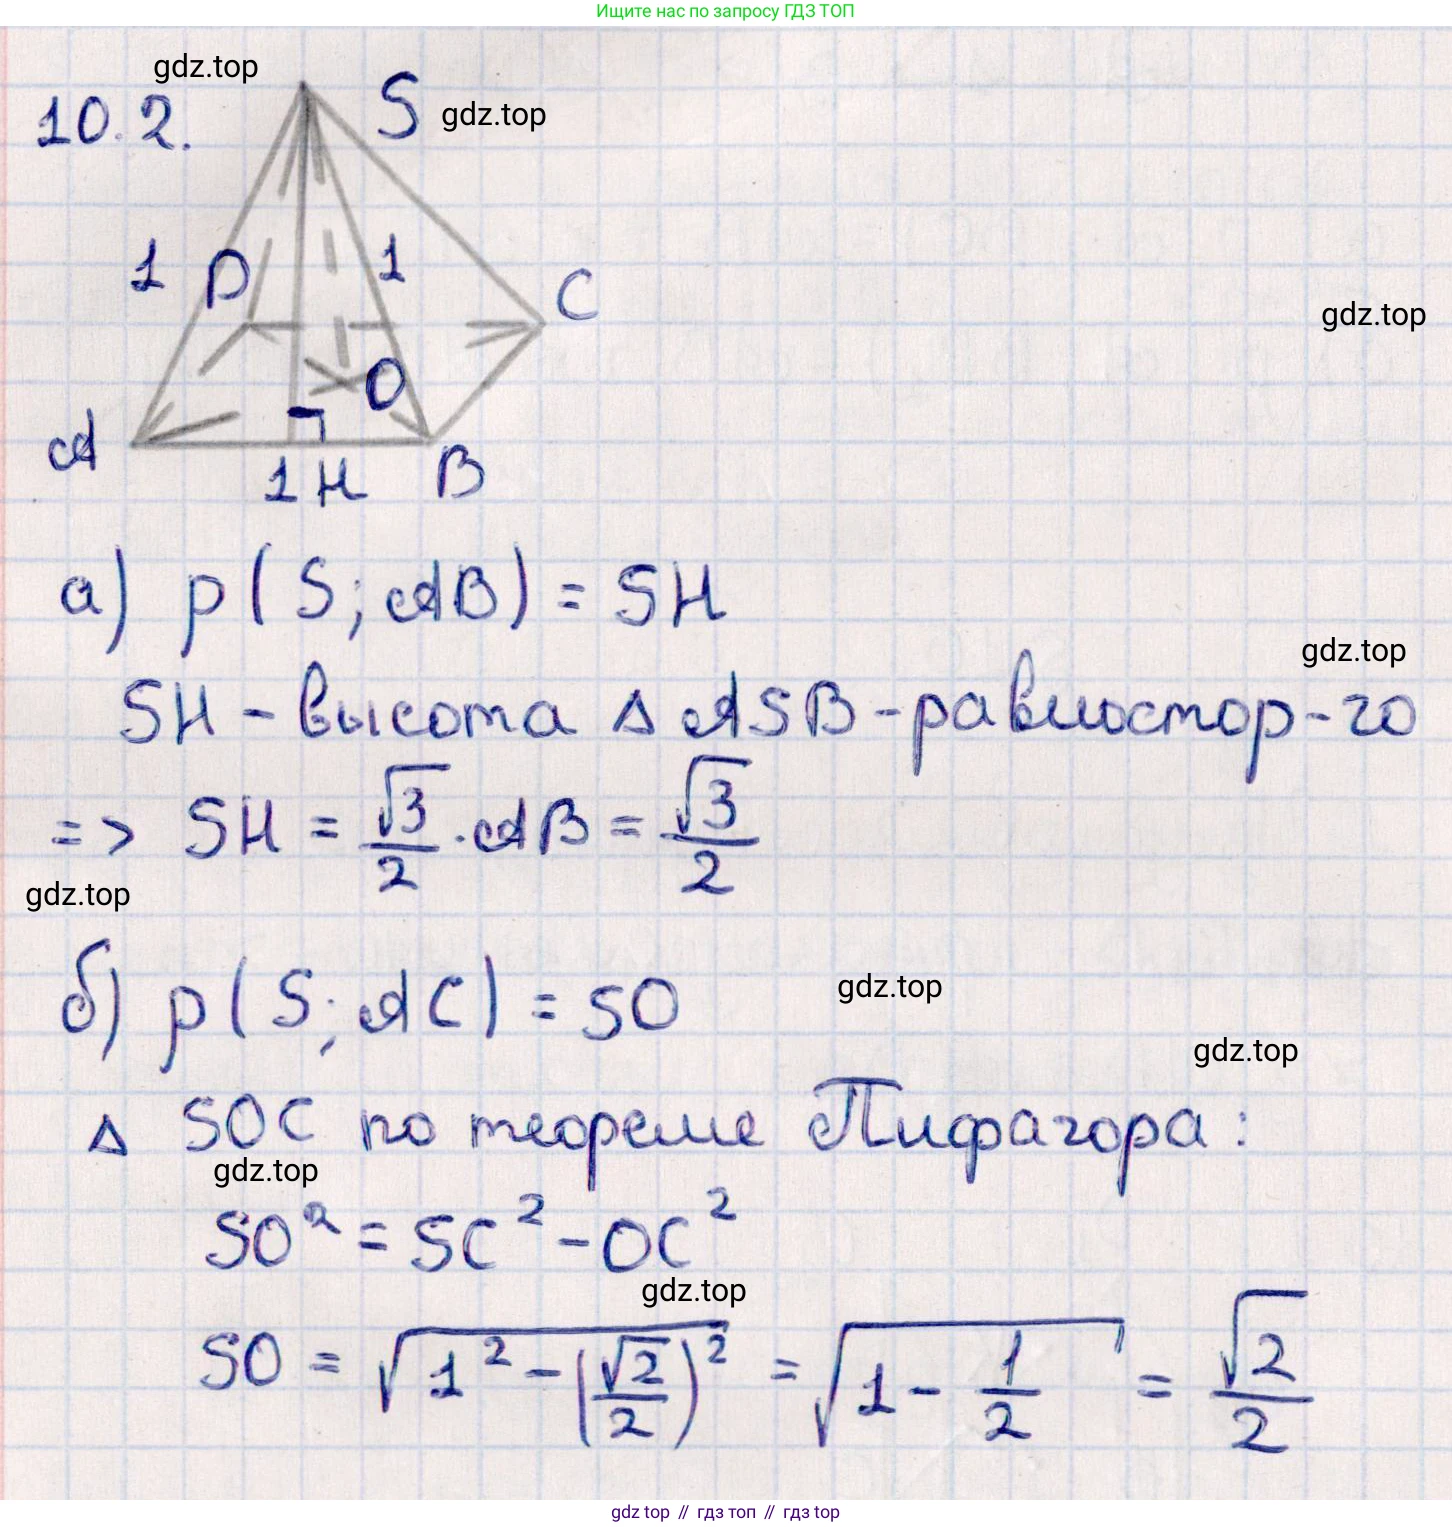 Ищите нас по запросу ГДЗ ТОП
gdz.top
10.2.
S
gdz.top
1
D
1
C
gdz.top
O
A
1
H
B
а) ρ(S; AB) = SH
gdz.top
SH - высота Δ ASB - равностор-го
=> SH = √3/2 · AB = √3/2
gdz.top
б) ρ(S; AC) = SO
gdz.top
gdz.top
Δ SOC по теореме Пифагора:
gdz.top
SO² = SC² - OC²
gdz.top
SO = √(1² - (√2/2)²) = √(1 - 1/2) = √2/2
gdz top // гдз топ // гдз top